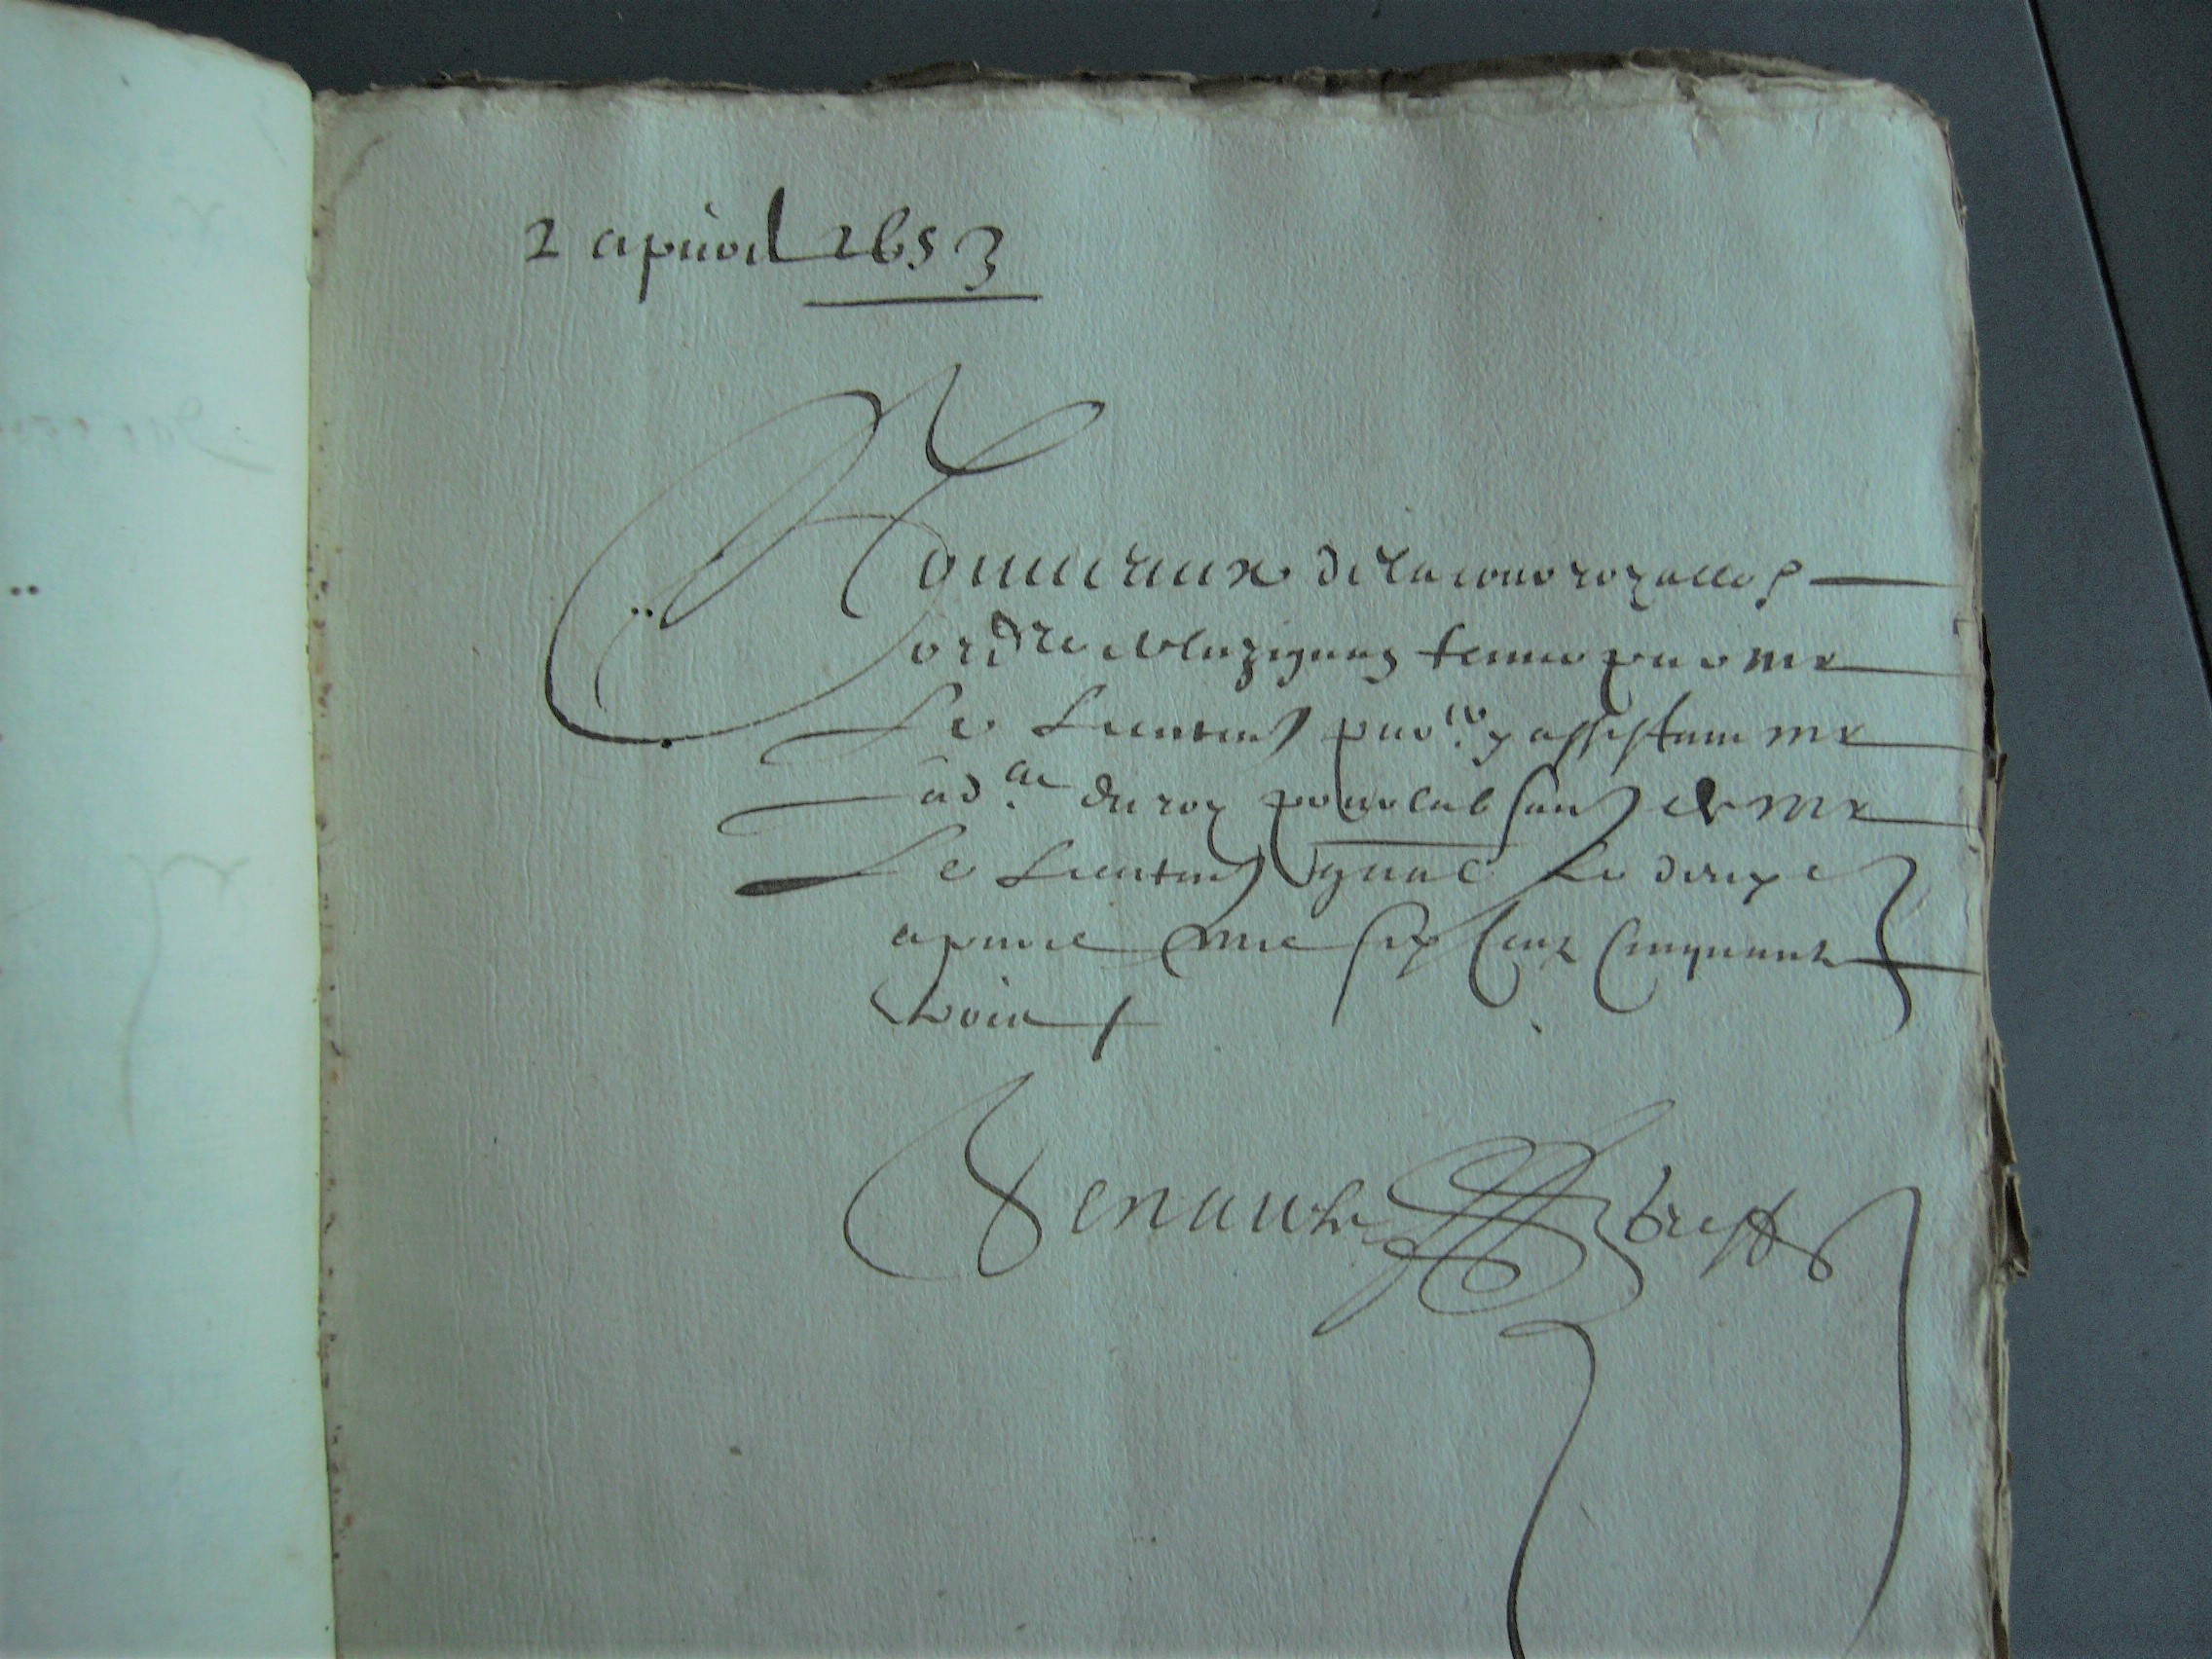 2 apuril 1653
Nouveaux de la cour royalle
ord.re de Luzignen tenue par mr
Le Lieuten par.er y assistant mr
l'ad.at du roy pour labsens de mr
Le Lieuten general Le deuxe
apvril mil six Cens Cinquante
trois
breff